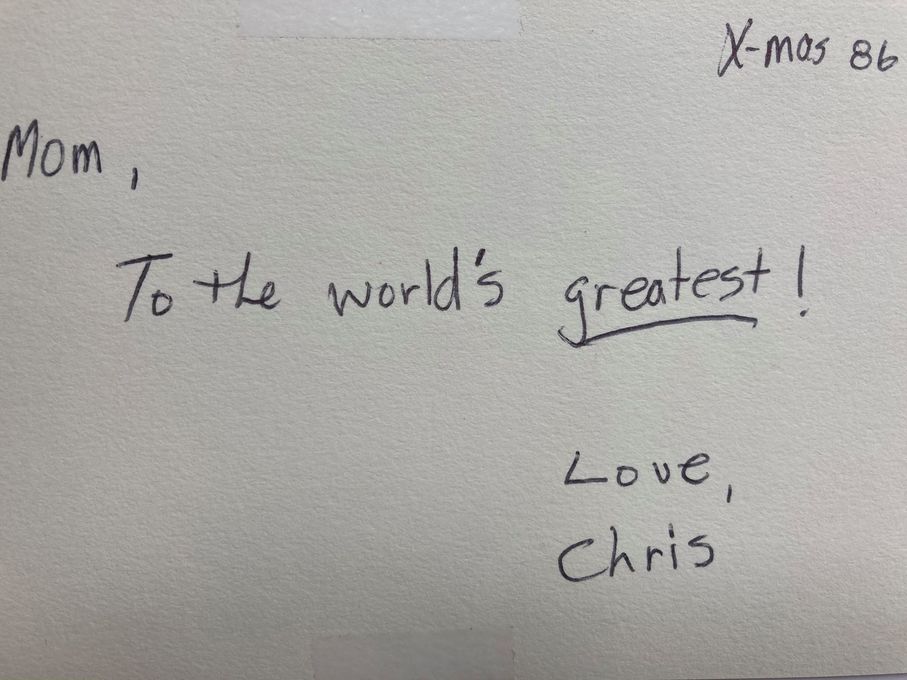 X-mas 86
Mom,
To the world's greatest!
Love,
Chris